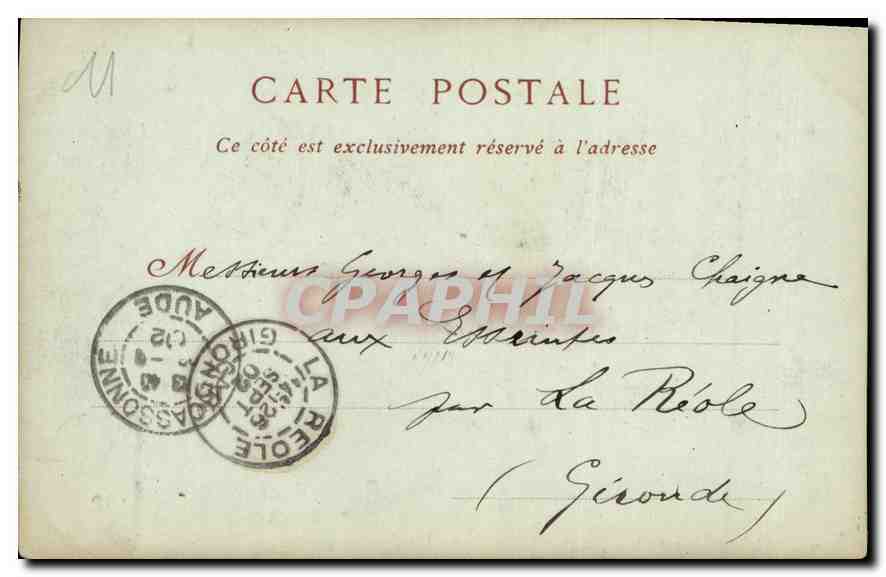 CARTE POSTALE
Ce côté est exclusivement réservé à l'adresse
Messieurs Georges et Jacques Chaigne
aux Esseintes
par La Réole
(Gironde)
CPAPHIL
CARCASSONNE
AUDE
LA REOLE
GIRONDE
26
SEPT
02